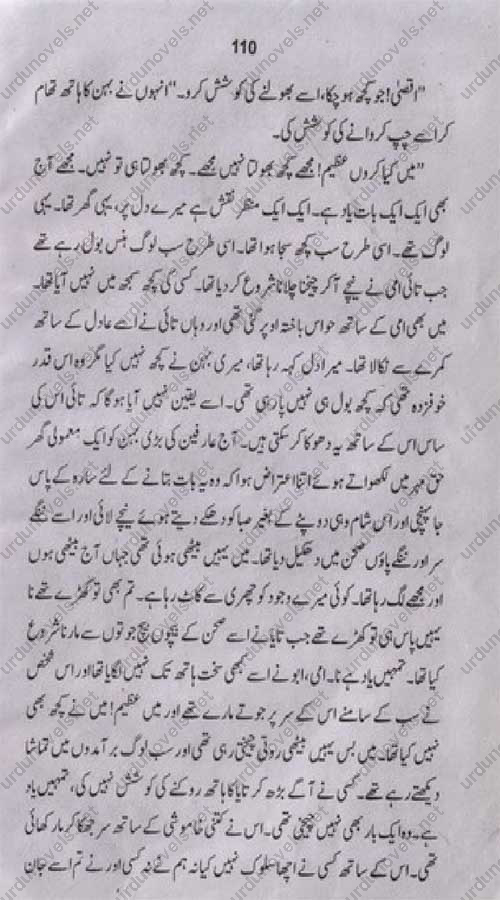 110
"اقصیٰ! جو کچھ ہو چکا، اسے بھولنے کی کوشش کرو۔" انہوں نے بہن کا ہاتھ تھام
کر اسے چپ کروانے کی کوشش کی۔
"میں کیا کروں عظیم! مجھے کچھ بھولتا نہیں مجھے۔ کچھ بھولتا ہی تو نہیں۔ مجھے آج
بھی ایک ایک بات یاد ہے۔ ایک ایک منظر نقش ہے میرے دل پر، یہی گھر تھا۔ یہی
لوگ تھے۔ اسی طرح سب کچھ سجا ہوا تھا۔ اسی طرح سب لوگ ہنس بول رہے تھے
جب تائی امی نے نیچے آ کر چیخنا چلانا شروع کر دیا تھا۔ کسی کی کچھ سمجھ میں نہیں آیا تھا۔
میں بھی امی کے ساتھ حواس باختہ اوپر گئی تھی اور وہاں تائی نے اسے عادل کے ساتھ
کمرے سے نکالا تھا۔ میرا دل کہہ رہا تھا، میری بہن نے کچھ نہیں کیا مگر وہ اس قدر
خوفزدہ تھی کہ کچھ بول ہی نہیں پا رہی تھی۔ اسے یقین نہیں آیا ہوگا کہ تائی اس کی
ساس اس کے ساتھ یہ دھوکا کر سکتی ہیں۔ آج عارفین کی بڑی بہن کو ایک معمولی گھر
حق مہر میں لکھواتے ہوئے اتنا اعتراض ہوا کہ وہ یہ بات بتانے کے لئے سارہ کے پاس
جا پہنچی اور اس شام وہی دوپٹے کے بغیر صبا کو دھکے دیتے ہوئے نیچے لائی اور اسے ننگے
سر اور ننگے پاؤں صحن میں دھکیل دیا تھا۔ میں یہیں بیٹھی ہوئی تھی جہاں آج بیٹھی ہوں
اور مجھے لگ رہا تھا۔ کوئی میرے وجود کو چھری سے کاٹ رہا ہے۔ تم بھی تو کھڑے تھے نا
یہیں پاس ہی تو کھڑے تھے جب تایا نے اسے صحن کے بیچوں بیچ جوتوں سے مارنا شروع
کیا تھا۔ تمہیں یاد ہے نا۔ امی، ابو نے اسے کبھی سخت ہاتھ تک نہیں لگایا تھا اور اس شخص
نے سب کے سامنے اس کے سر پر جوتے مارے تھے اور میں عظیم! میں نے کچھ بھی
نہیں کیا تھا۔ میں بس یہیں بیٹھی روتی چیختی رہی تھی اور سب لوگ برآمدوں میں تماشا
دیکھتے رہے تھے۔ کسی نے آگے بڑھ کر تایا کا ہاتھ روکنے کی کوشش نہیں کی، تمہیں یاد
ہے۔ وہ ایک بار بھی نہیں چیخی تھی۔ اس نے کتنی خاموشی کے ساتھ سر جھکا کر مار کھائی
تھی۔ اس کے ساتھ کسی نے اچھا سلوک نہیں کیا نہ ہم نے نہ کسی اور نے تم اسے جان
urdunovels.net